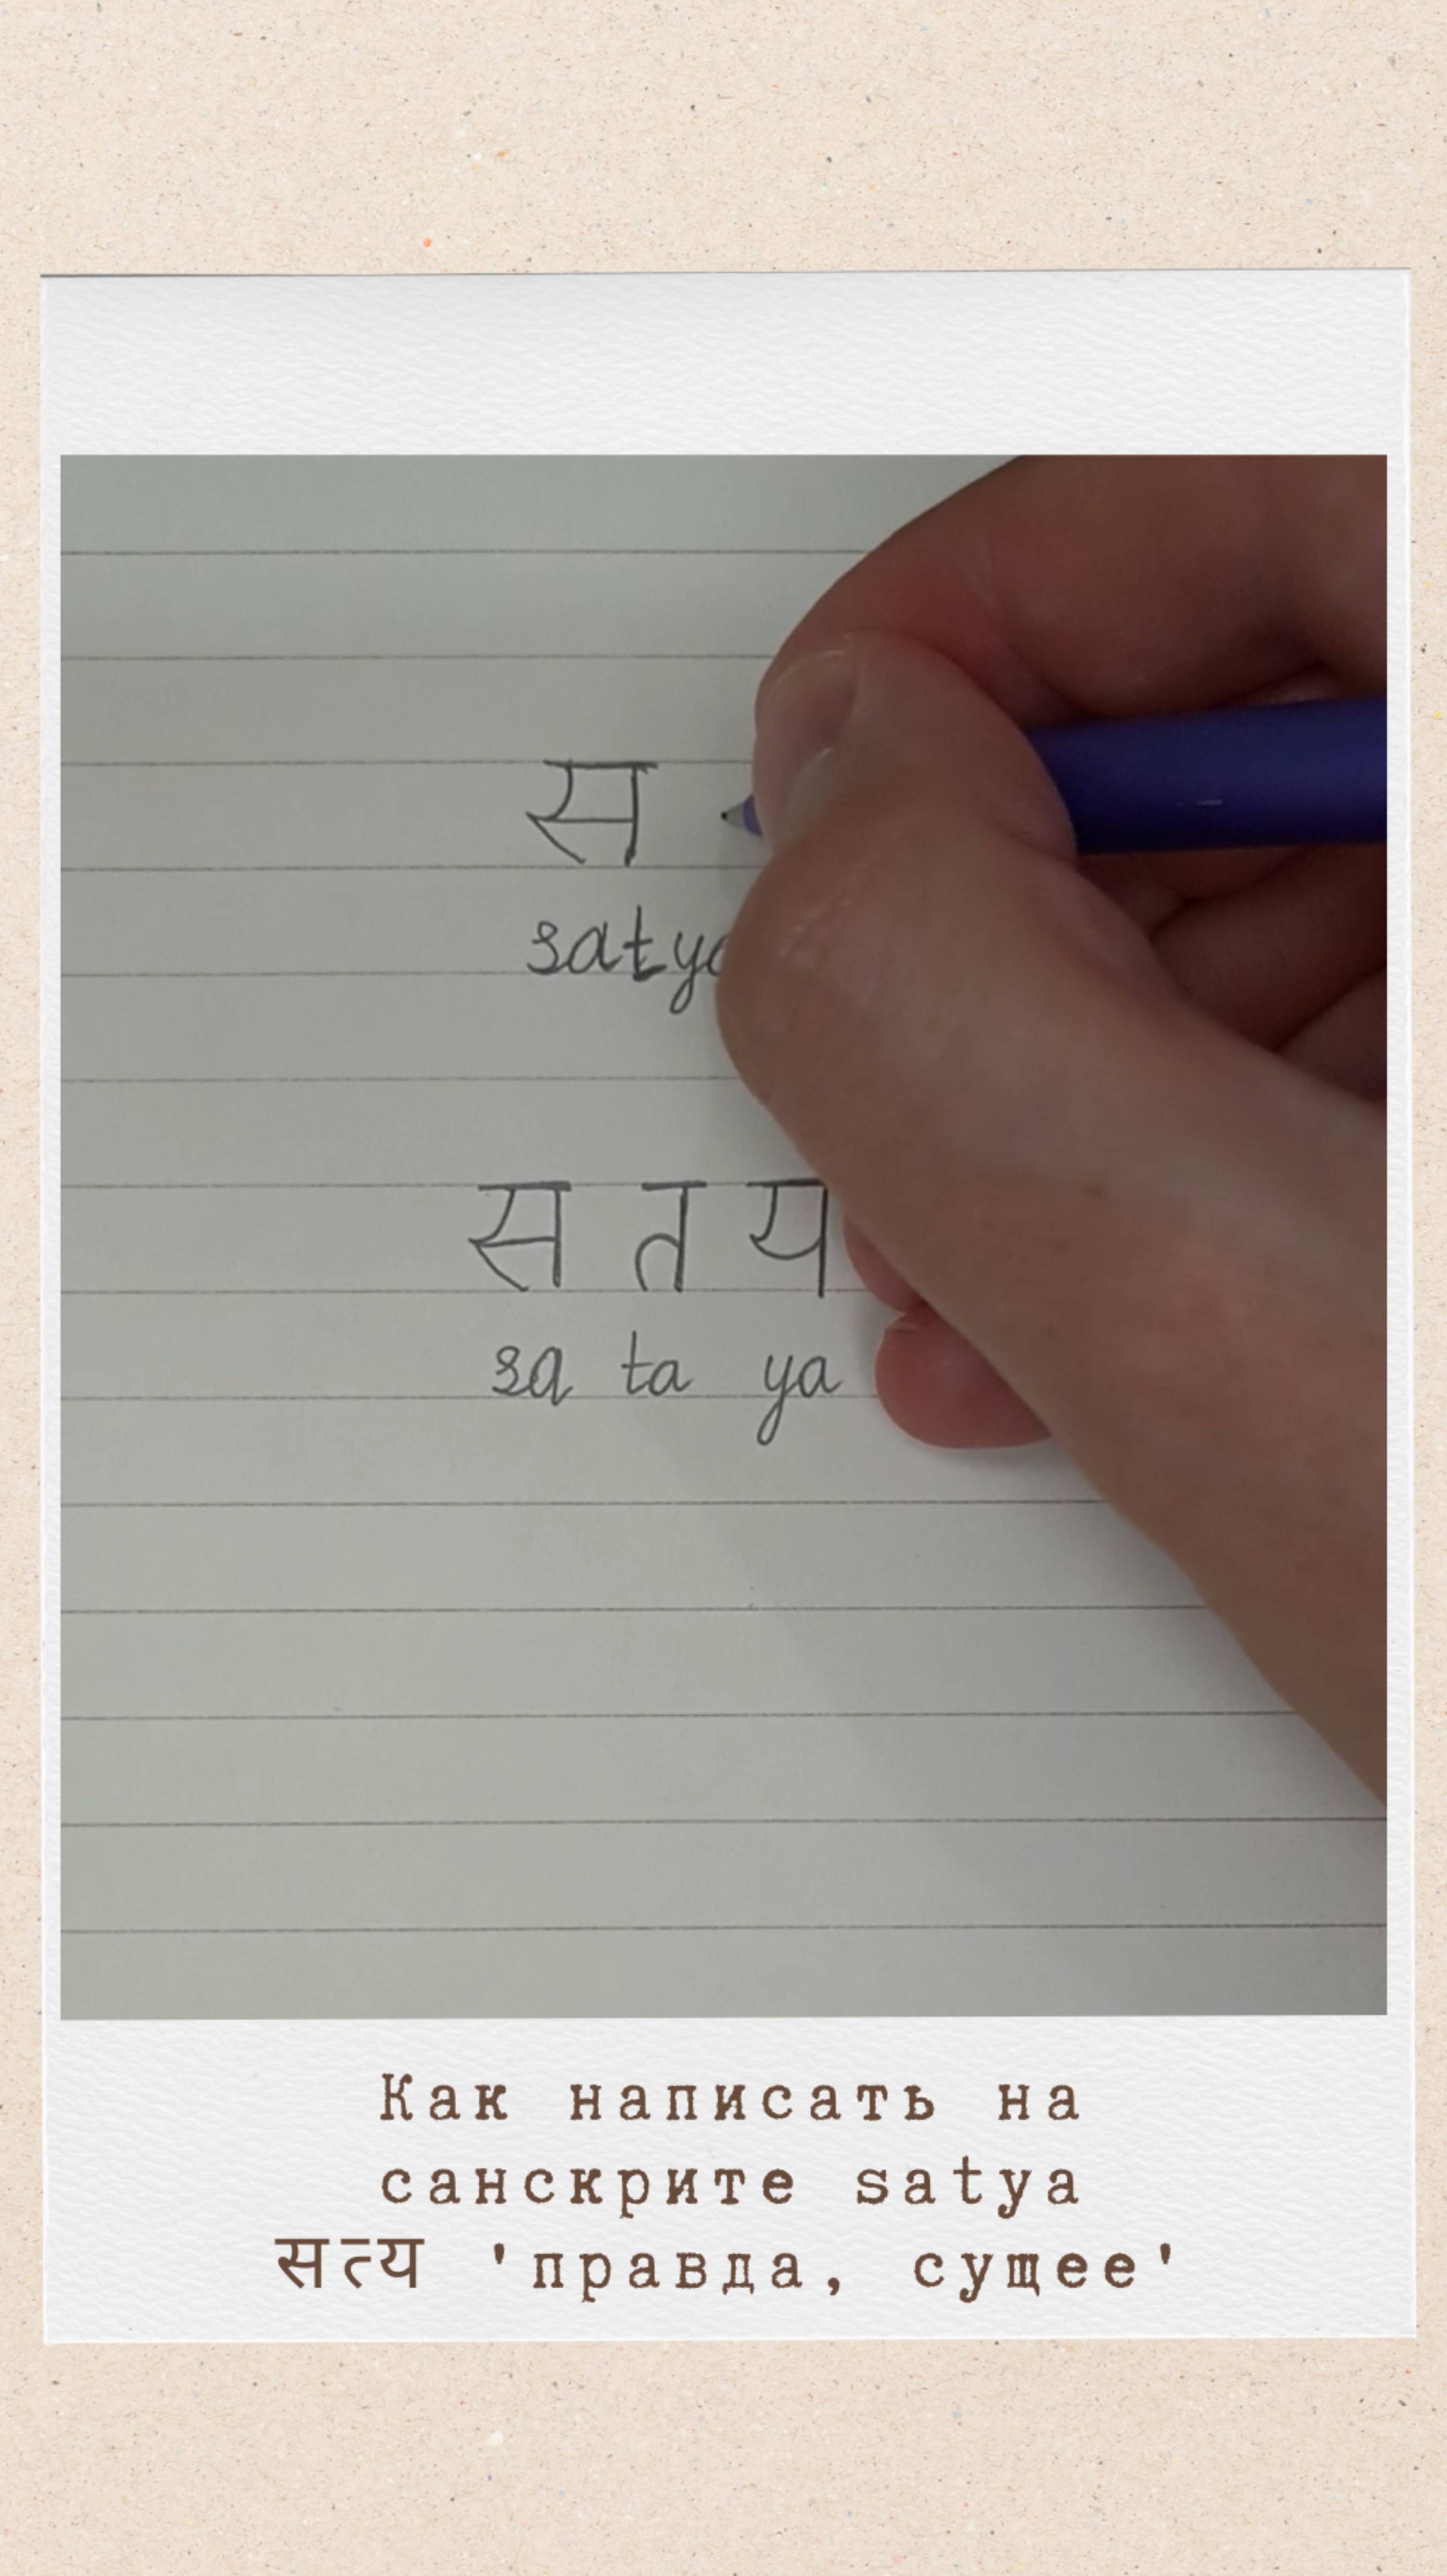 स
saty
स त य
sa ta ya
Как написать на
санскрите satya
सत्य 'правда, сущее'